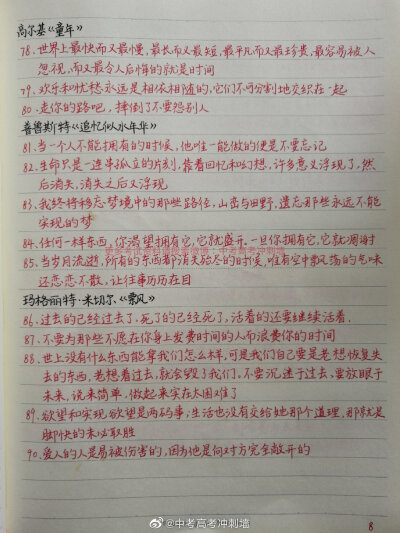 高尔基《童年》
78.世界上最快而又最慢,最长而又最短,最平凡而又最珍贵,最容易被人
忽视,而又最令人后悔的就是时间
79.欢乐和忧愁永远是相依相随的,它们不可分割地交织在一起
80.走你的路吧,摔倒了不要怨别人
普鲁斯特《追忆似水年华》
81.当一个人不能拥有的时候,他唯一能做的便是不要忘记
82.生命只是一连串孤立的片刻,靠着回忆和幻想,许多意义浮现了,然
后消失,消失之后又浮现
83.我终将移忘梦境中的那些路径,山峦与田野,遗忘那些永远不能
实现的梦
84.任何一样东西,你渴望拥有它,它就盛开。一旦你拥有它,它就凋谢
85.当岁月流逝,所有的东西都消失殆尽的时候,唯有空中飘荡的气味
还恋恋不散,让往事历历在目
玛格丽特·米切尔《飘》
86.过去的已经过去了,死了的已经死了,活着的还要继续活着.
87.不要为那些不愿在你身上发费时间的人而浪费你的时间
88.世上没有什么东西能拿我们怎么样,可是我们自己要是老想恢复失
去的东西,老想着过去,就会毁了我们。不要沉迷于过去,要放眼于
未来,说来简单,做起来实在太困难了
89.欲望和实现欲望是两码事;生活也没有交给她那个道理,那就是
脚快的未必取胜
90.爱人的人是易被伤害的,因为他是向对方完全敞开的
8
@中考高考冲刺墙